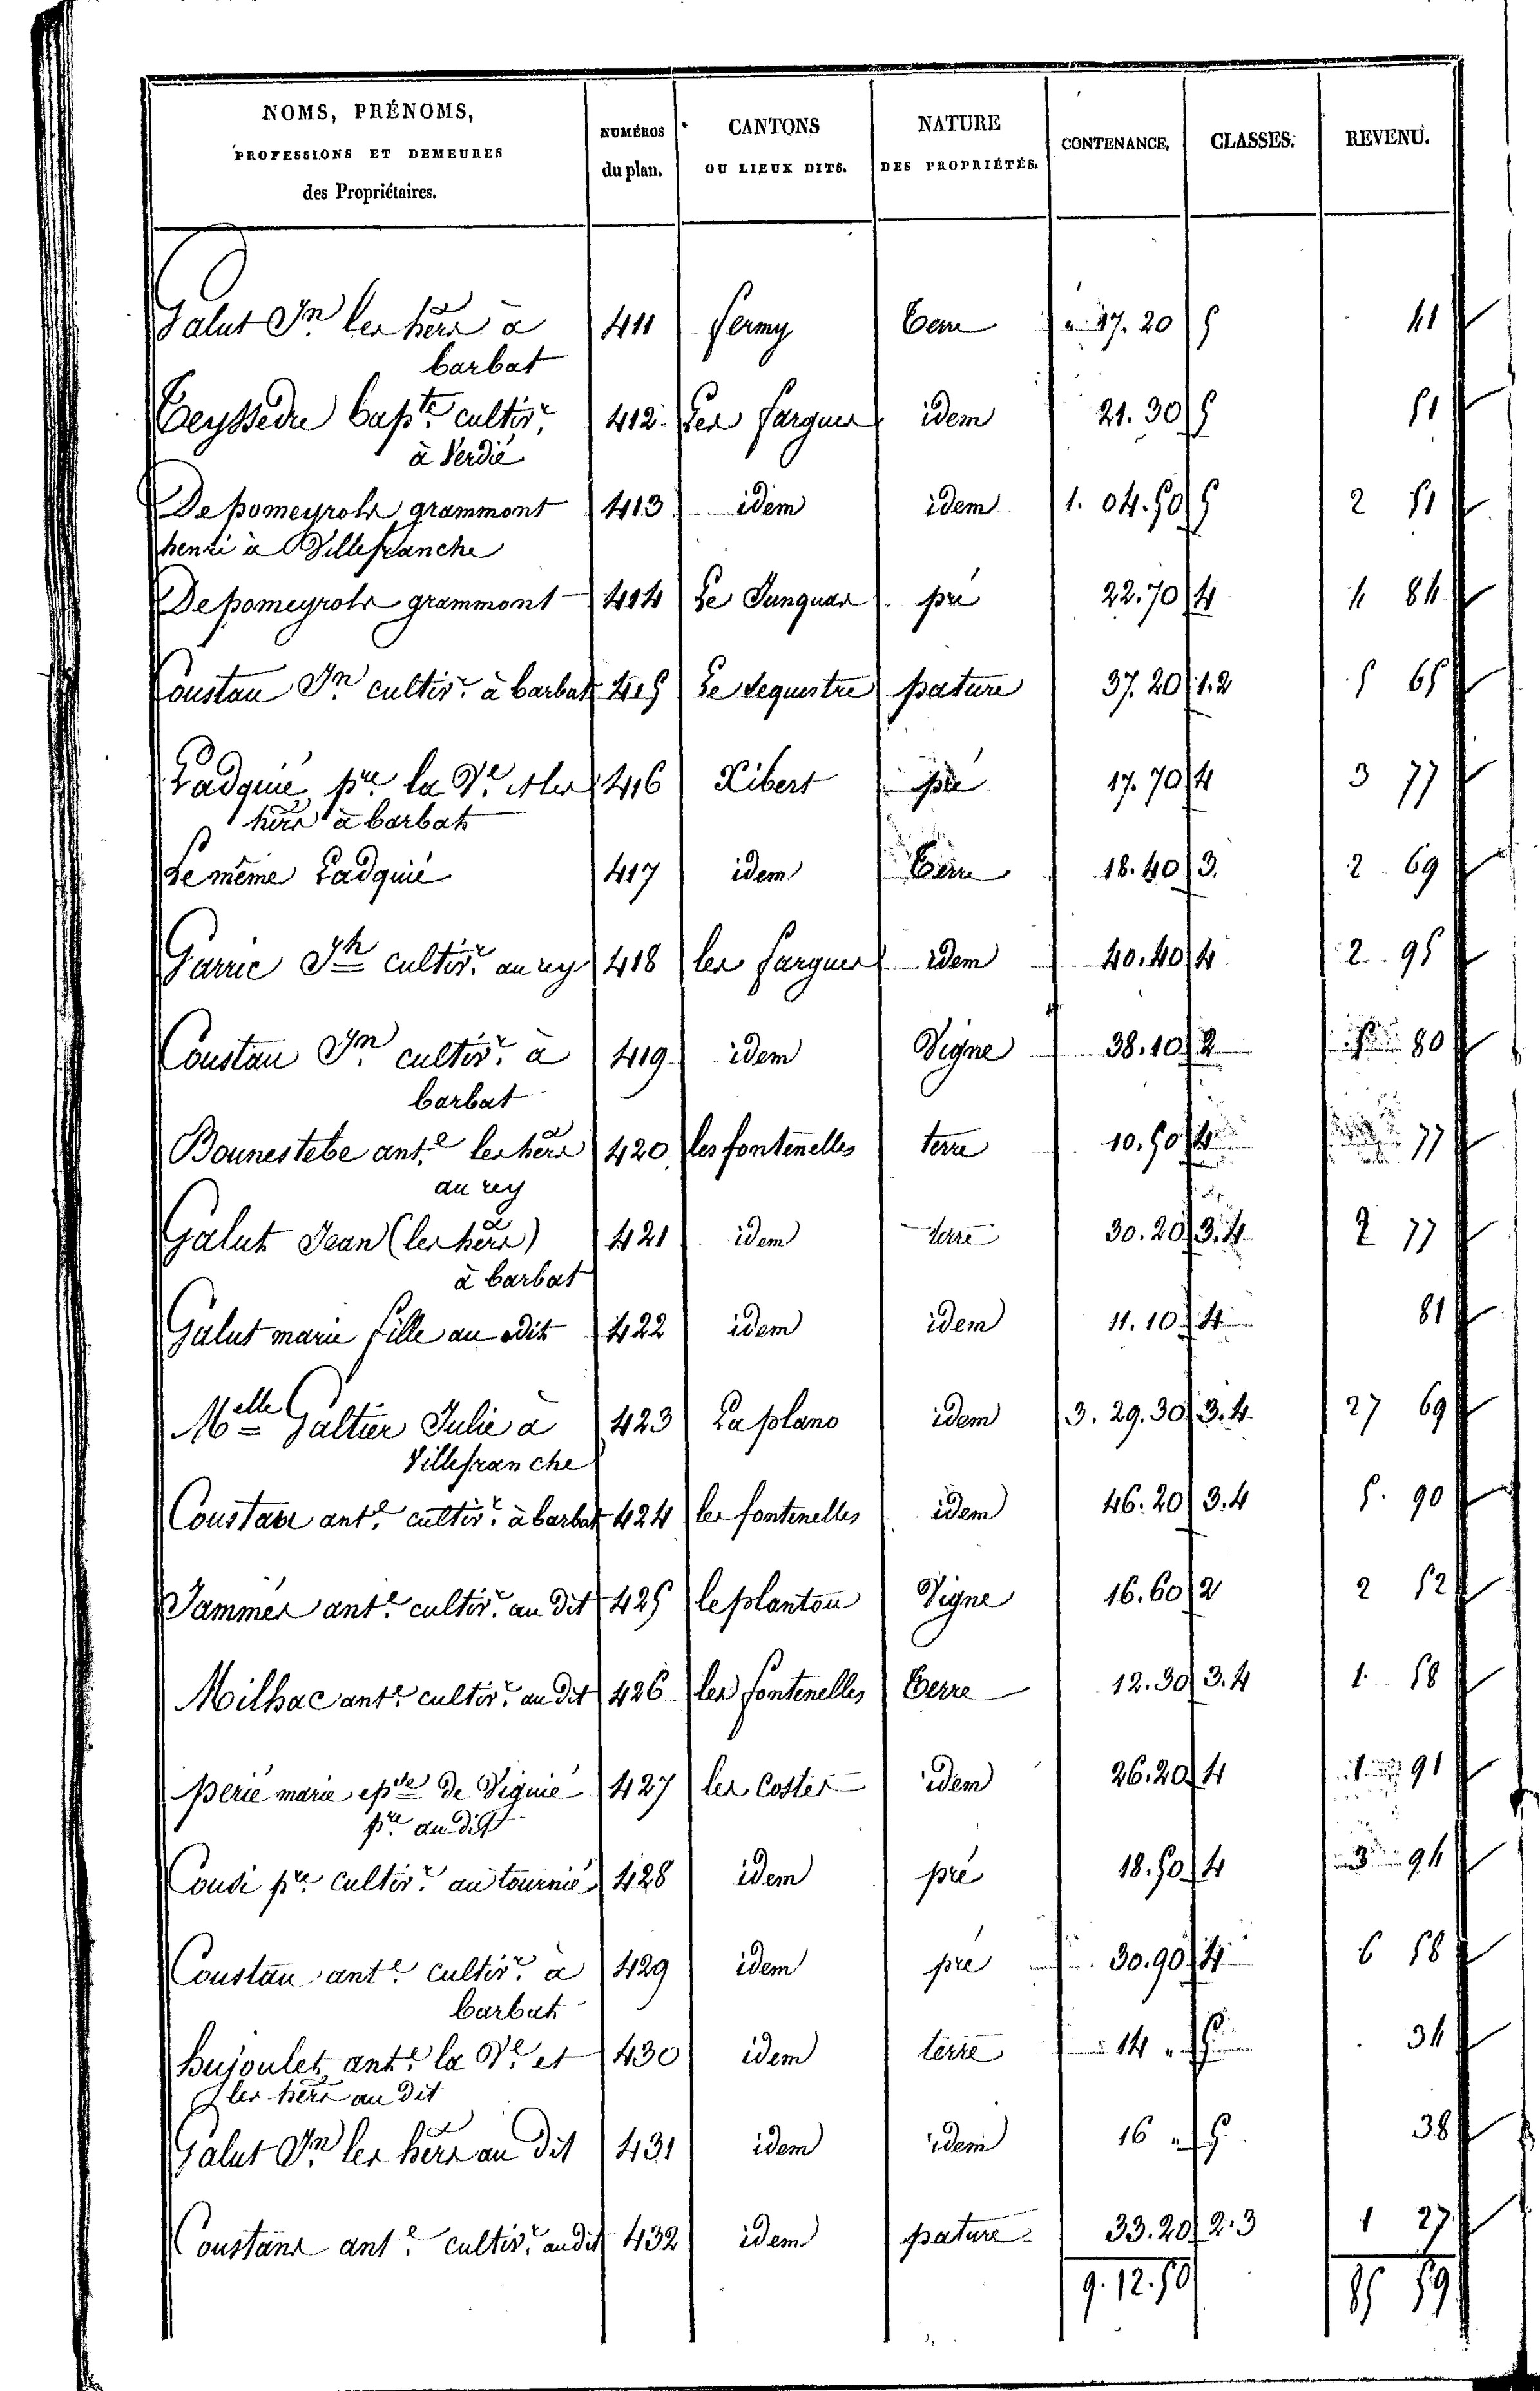 NOMS, PRÉNOMS, PROFESSIONS ET DEMEURES des Propriétaires. | NUMÉROS du plan. | CANTONS OU LIEUX DITS. | NATURE DES PROPRIÉTÉS. | CONTENANCE. | CLASSES. | REVENU.
Galut Jn les hérs à | 411 | fermy | Terre | 17. 20 | 5 | 41
barbat
Teyssedre bapte cultivr | 412 | Les fargues | idem | 21. 30 | 5 | 51
à Verdié
De pomeyrols grammont | 413 | idem | idem | 1. 04. 50 | 5 | 2 51
henri à Villefranche
De pomeyrols grammont | 414 | Le Junquas | pré | 22. 70 | 4 | 4 84
Coustau Jn cultivr à barbat | 415 | Le sequestre | pature | 37. 20 | 1.2 | 5 65
Ladquié pre la Ve et les | 416 | Xibert | pré | 17. 70 | 4 | 3 77
hérs à barbat
Le même Ladquié | 417 | idem | Terre | 18. 40 | 3. | 2 69
Garric Jh cultivr au rey | 418 | les fargues | idem | 40. 40 | 4 | 2 95
Coustau Jn cultivr à | 419 | idem | Vigne | 38. 10 | 2 | 5 80
barbat
Bounestebe ante les hérs | 420 | les fontenelles | terre | 10. 50 | 4 | 77
au rey
Galut Jean (les hérs) | 421 | idem | terre | 30. 20 | 3.4 | 2 77
à barbat
Galut marie fille au dit | 422 | idem | idem | 11. 10 | 4 | 81
Melle Galtier Julie à | 423 | La plano | idem | 3. 29. 30 | 3.4 | 27 69
Villefranche
Coustau ante cultivr à barbat | 424 | les fontenelles | idem | 46. 20 | 3.4 | 5. 90
Jammes ante cultivr au dit | 425 | le plantou | Vigne | 16. 60 | 2 | 2 52
Milhac ante cultivr au dit | 426 | les fontenelles | Terre | 12. 30 | 3.4 | 1 58
perié marie epse de Viguié | 427 | les Costes | idem | 26. 20 | 4 | 1 91
pre au dit
Cousi pre cultivr au tournié | 428 | idem | pré | 18. 50 | 4 | 3 94
Coustau ante cultivr à | 429 | idem | pré | 30. 90 | 4 | 6 58
barbat
bujoulet ante la Ve et | 430 | idem | terre | 14 " | 5 | 34
les hérs au dit
Galut Jn les hérs au dit | 431 | idem | idem | 16 " | 5 | 38
Coustans ante cultivr au dit | 432 | idem | pature | 33. 20 | 2.3 | 1 27
9. 12. 50 | 85 59